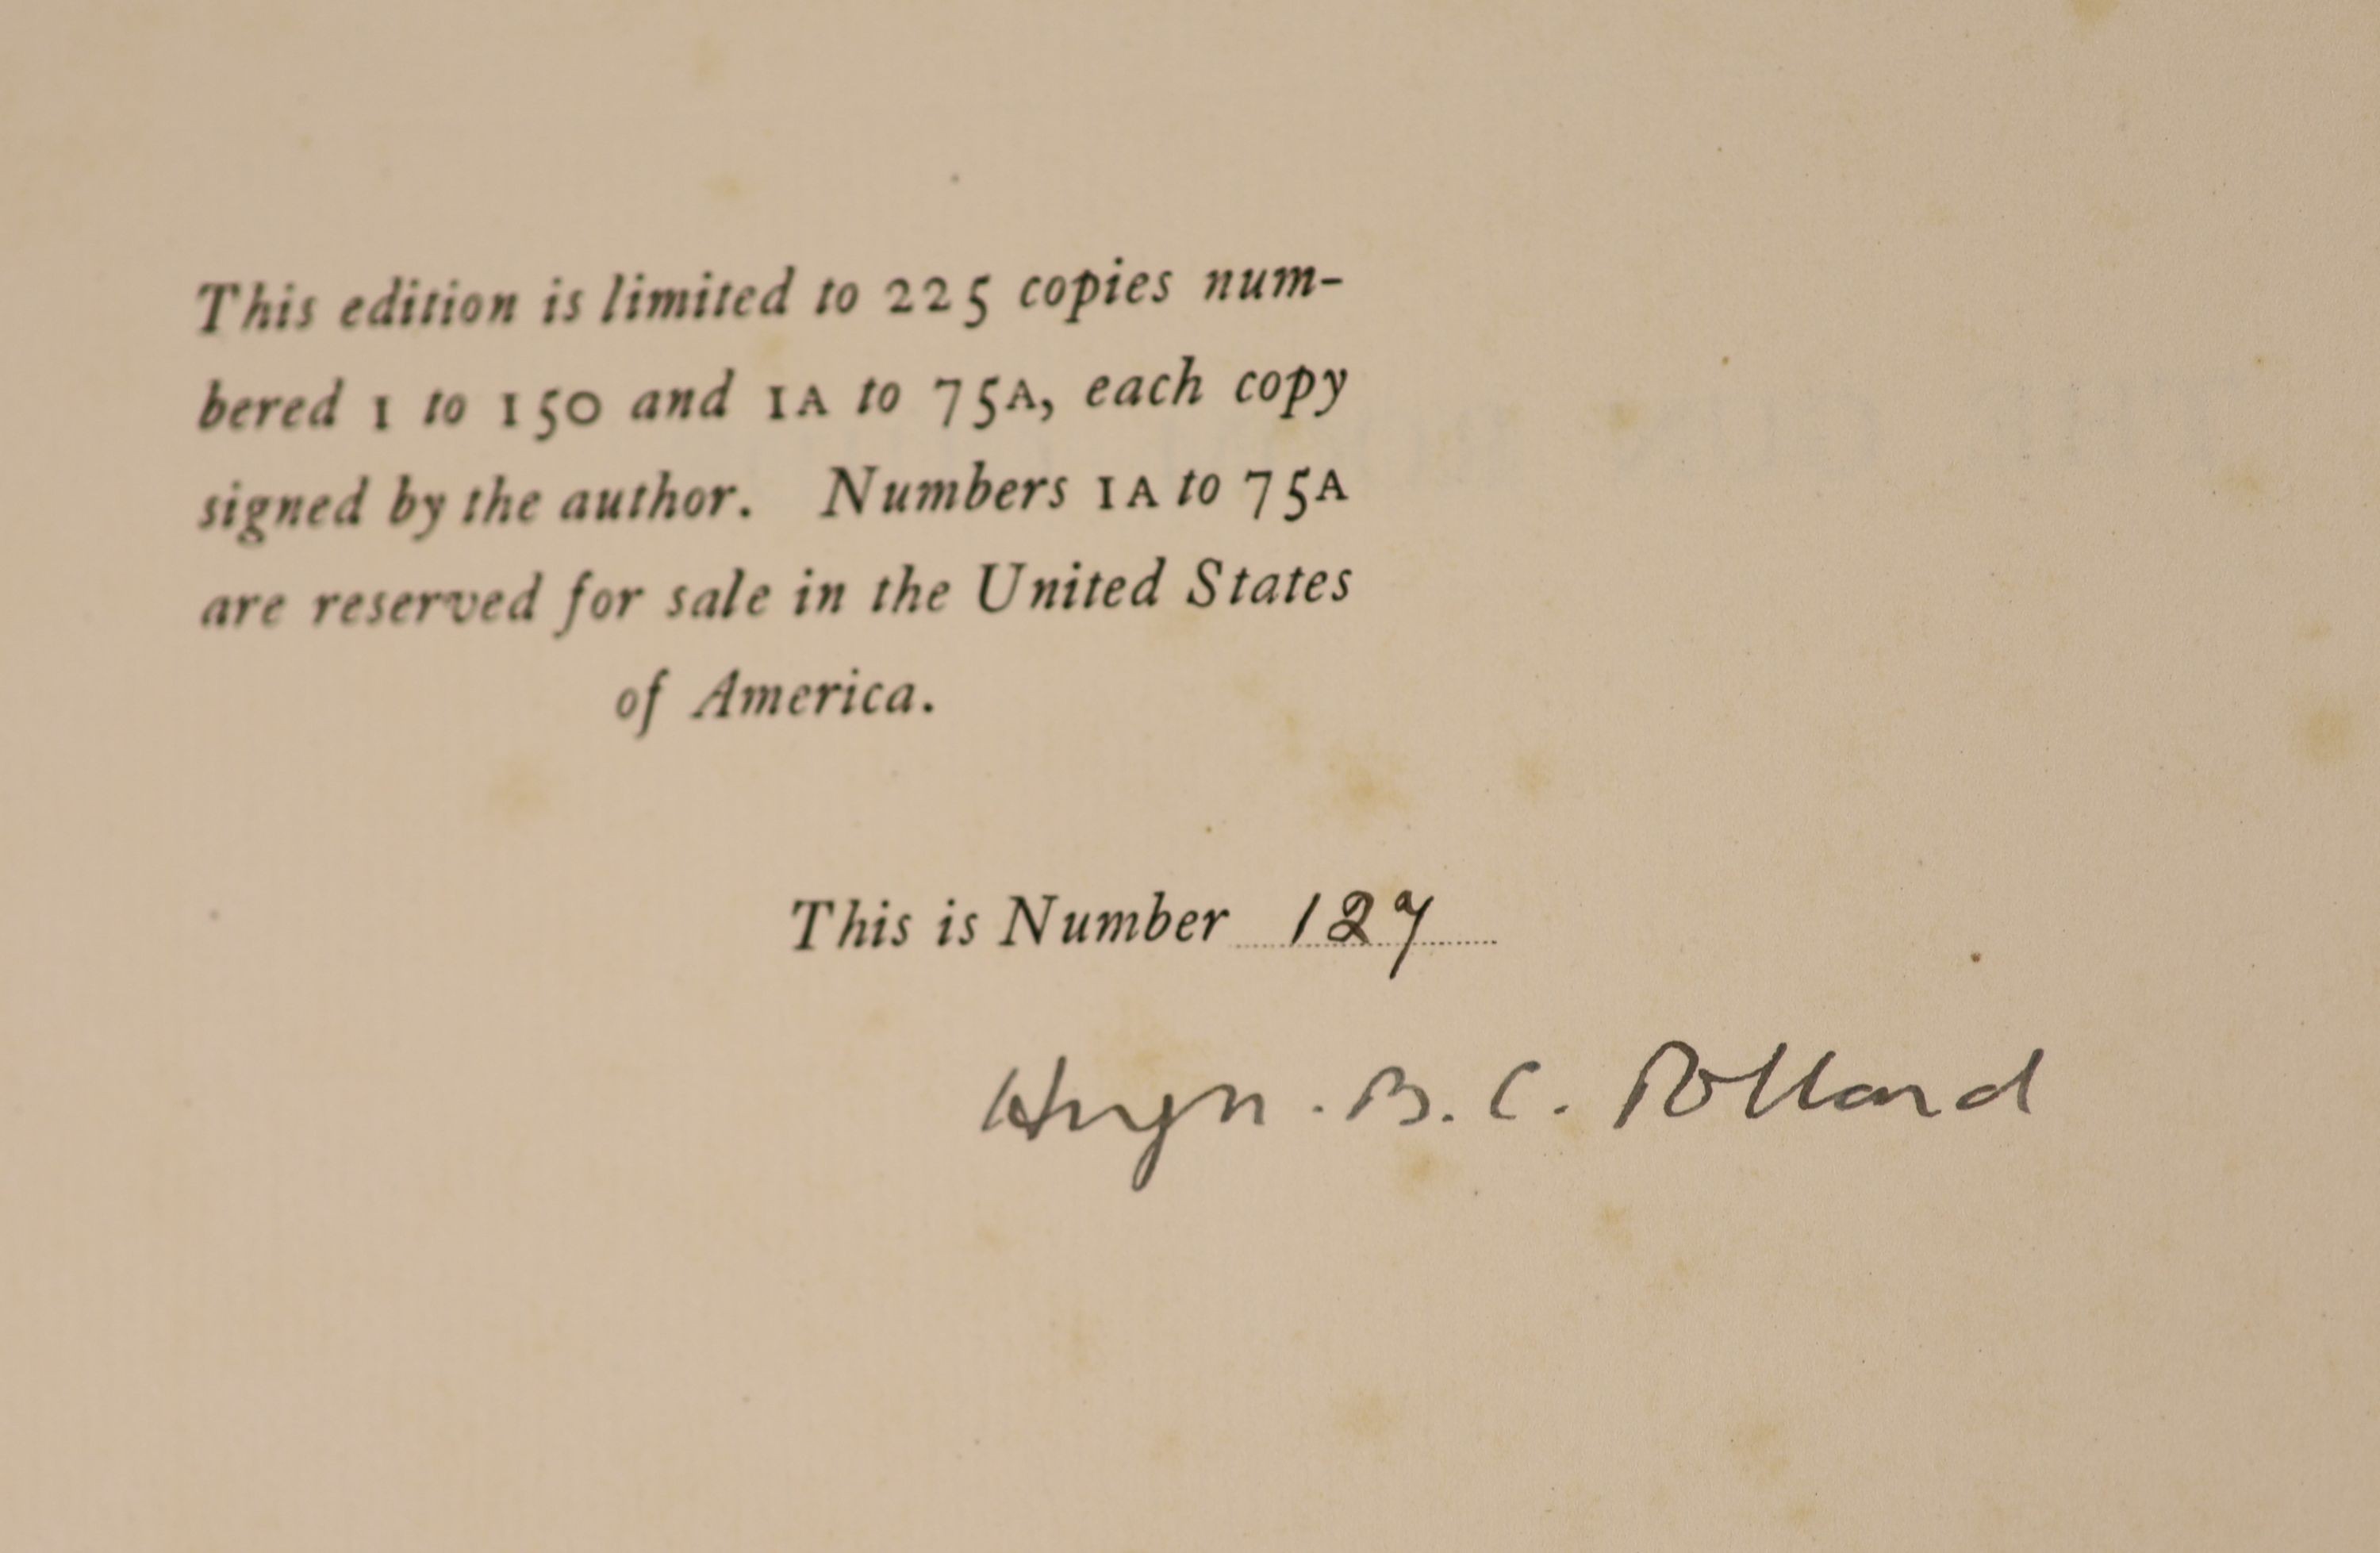 This edition is limited to 225 copies num-
bered 1 to 150 and 1A to 75A, each copy
signed by the author. Numbers 1A to 75A
are reserved for sale in the United States
of America.
This is Number 127
Hugh. B. C. Pollard